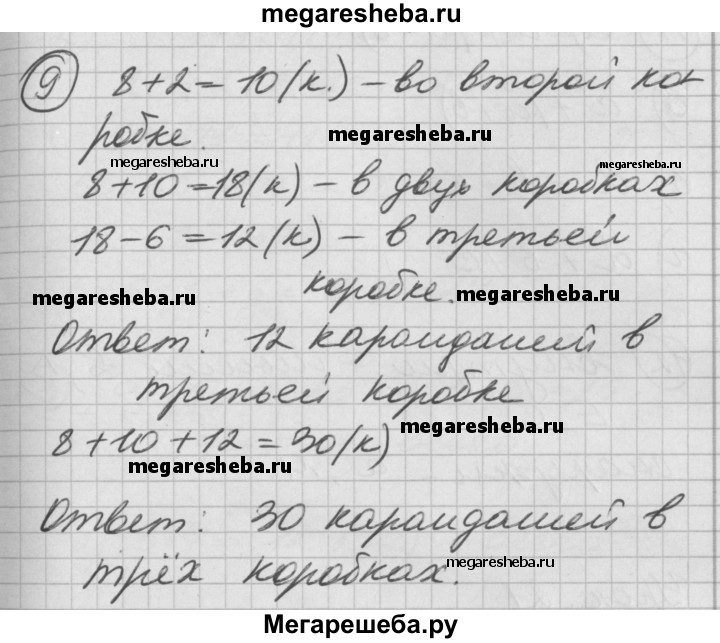 megaresheba.ru
9 8+2=10(к.) – во второй ко-
робке.
megaresheba.ru
megaresheba.ru
megaresheba.ru
8+10=18(к) – в двух коробках
18-6=12(к) – в третьей
коробке.
megaresheba.ru
megaresheba.ru
Ответ: 12 карандашей в
третьей коробке
8+10+12=30(к)
megaresheba.ru
megaresheba.ru
Ответ: 30 карандашей в
трёх коробках.
megaresheba.ru
Мегарешеба.ру